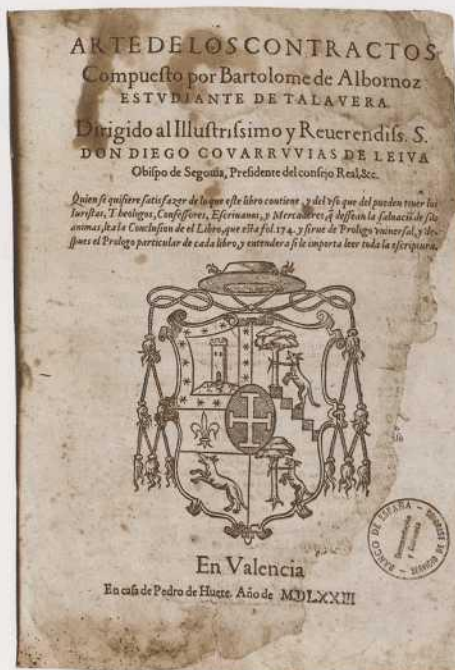 ARTE DE LOS CONTRACTOS
Compuesto por Bartolome de Albornoz
ESTVDIANTE DE TALAVERA.
Dirigido al Illustrissimo y Reuerendiss. S.
DON DIEGO COVARRVVIAS DE LEIVA
Obispo de Segouia, Presidente del consejo Real, &c.
Quien se quisiere satisfazer de lo que este libro contiene, y del vso que del pueden tener los
Iuristas, Theologos, Confessores, Escriuanos, y Mercaderes, q̃ dessean la saluaciõ de sus
animas, lea la Conclusion de el Libro, que esta fol. 174. y sirue de Prologo vniuersal, y des
pues el Prologo particular de cada libro, y entendera si le importa leer toda la escriptura.
BANCO DE ESPAÑA
En Valencia
En casa de Pedro de Huete. Año de MDLXXIII